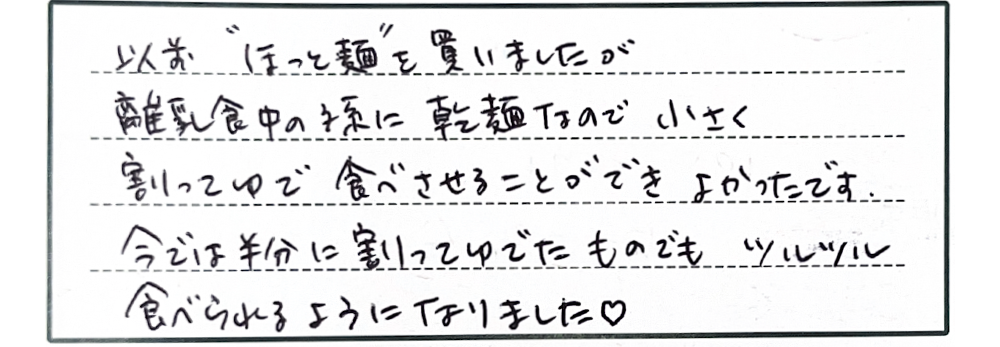 以前 “ほっと麺”を買いましたが
離乳食中の孫に 乾麺なので 小さく
割ってゆで 食べさせることができ よかったです.
今では半分に割ってゆでたものでも ツルツル
食べられるようになりました♡